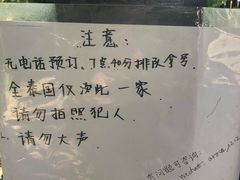 注意:
无电话预订、7点40分排队拿号
全泰国仅此一家
请勿拍照犯人
请勿大声